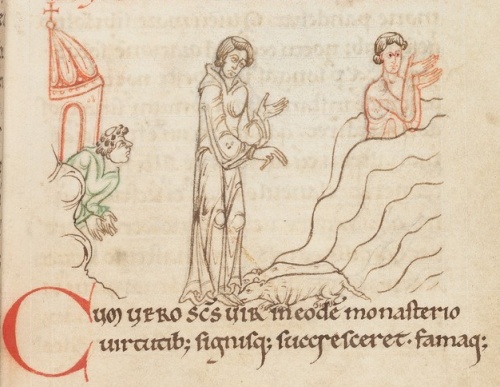 Cum vero scs vir in eode monasterio
virtutib; signisq; succresceret. famaq;